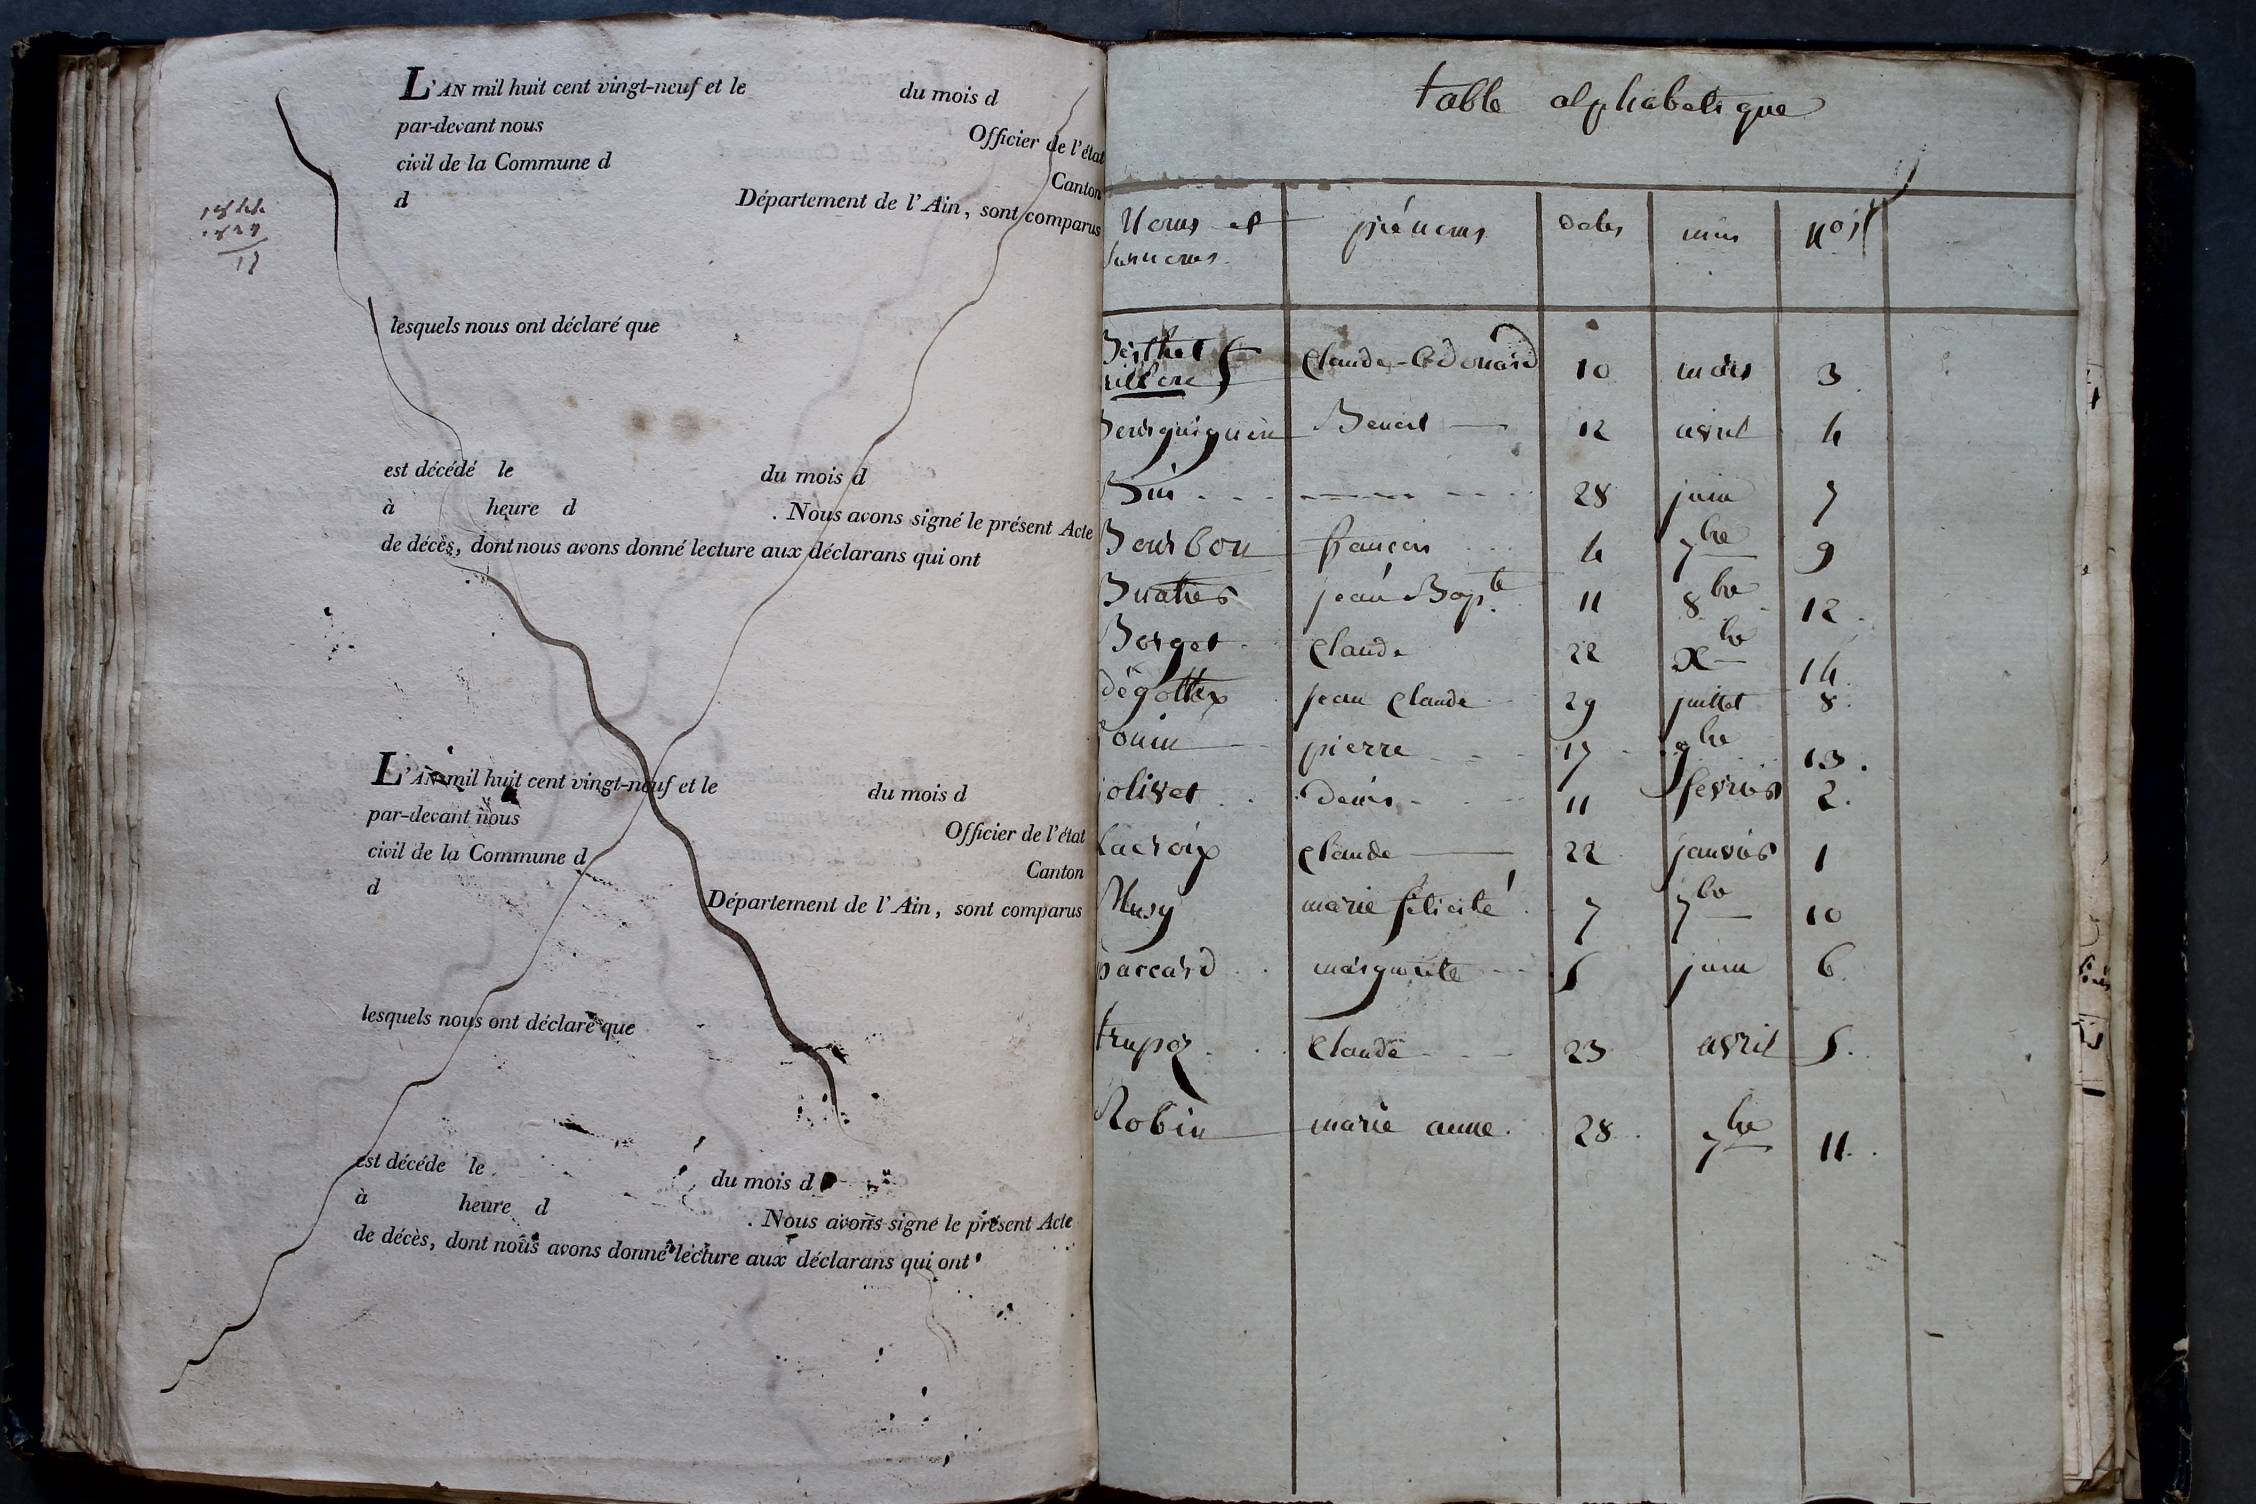 L'AN mil huit cent vingt-neuf et le du mois d
par-devant nous Officier de l'état
civil de la Commune d Canton
d Département de l'Ain, sont comparus
lesquels nous ont déclaré que
est décédé le du mois d
à heure d . Nous avons signé le présent Acte
de décès, dont nous avons donné lecture aux déclarans qui ont
L'AN mil huit cent vingt-neuf et le du mois d
par-devant nous Officier de l'état
civil de la Commune d Canton
d Département de l'Ain, sont comparus
lesquels nous ont déclaré que
est décédé le du mois d
à heure d . Nous avons signé le présent Acte
de décès, dont nous avons donné lecture aux déclarans qui ont
table alphabetique
Noms et prénoms dates mois nos
surnoms
Berthet claude-Edouard 10 mars 3
Benoit 12 avril 4
28 juin 7
Bourbon françois 4 7bre 9
jean Bapte 11 8bre 12
Borget claude 22 Xbre 14
dégottex jean claude 29 juillet 8
pierre 17 9bre 13
jolivet denis 11 fevrier 2
Lacroix claude 22 janvier 1
Musy marie félicité 7 7bre 10
paccard marguerite 5 juin 6
trupoz claude 23 avril 5
Robin marie anne 28 7bre 11